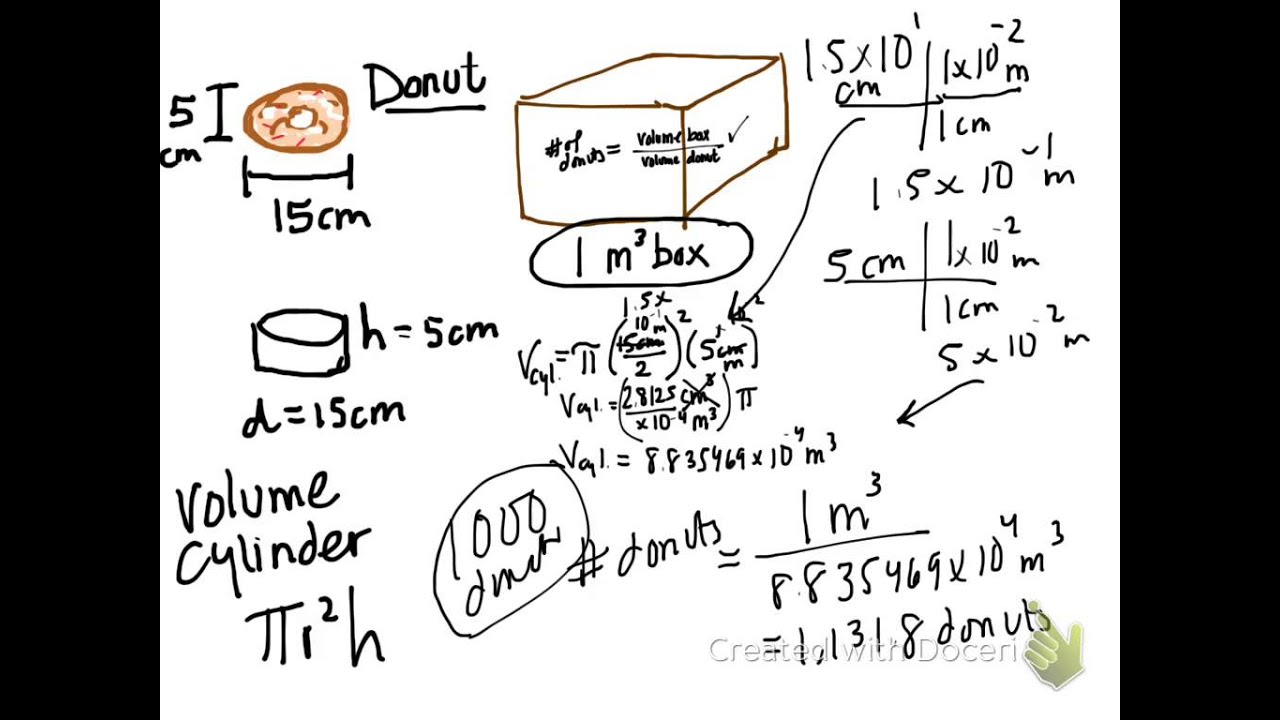 Donut
5 cm
15cm
# of donuts = volume box / volume donut ✓
1 m³ box
h = 5cm
d = 15cm
Volume
Cylinder
πr²h
1.5x10¹ cm | 1x10⁻² m
1cm
1.5 x 10⁻¹ m
5 cm | 1x10⁻² m
1cm
5 x 10⁻² m
1.5x
10⁻¹m
Vcyl. = π (15cm / 2)² (5cm
m)
Vcyl. = (2.8125 cm³ / x10⁻⁴ m³) π
Vcyl. = 8.835469x10⁻⁴ m³
1000
# donuts = 1 m³ / 8.835469x10⁴ m³
= 1,1318 donuts
Created with Doceri